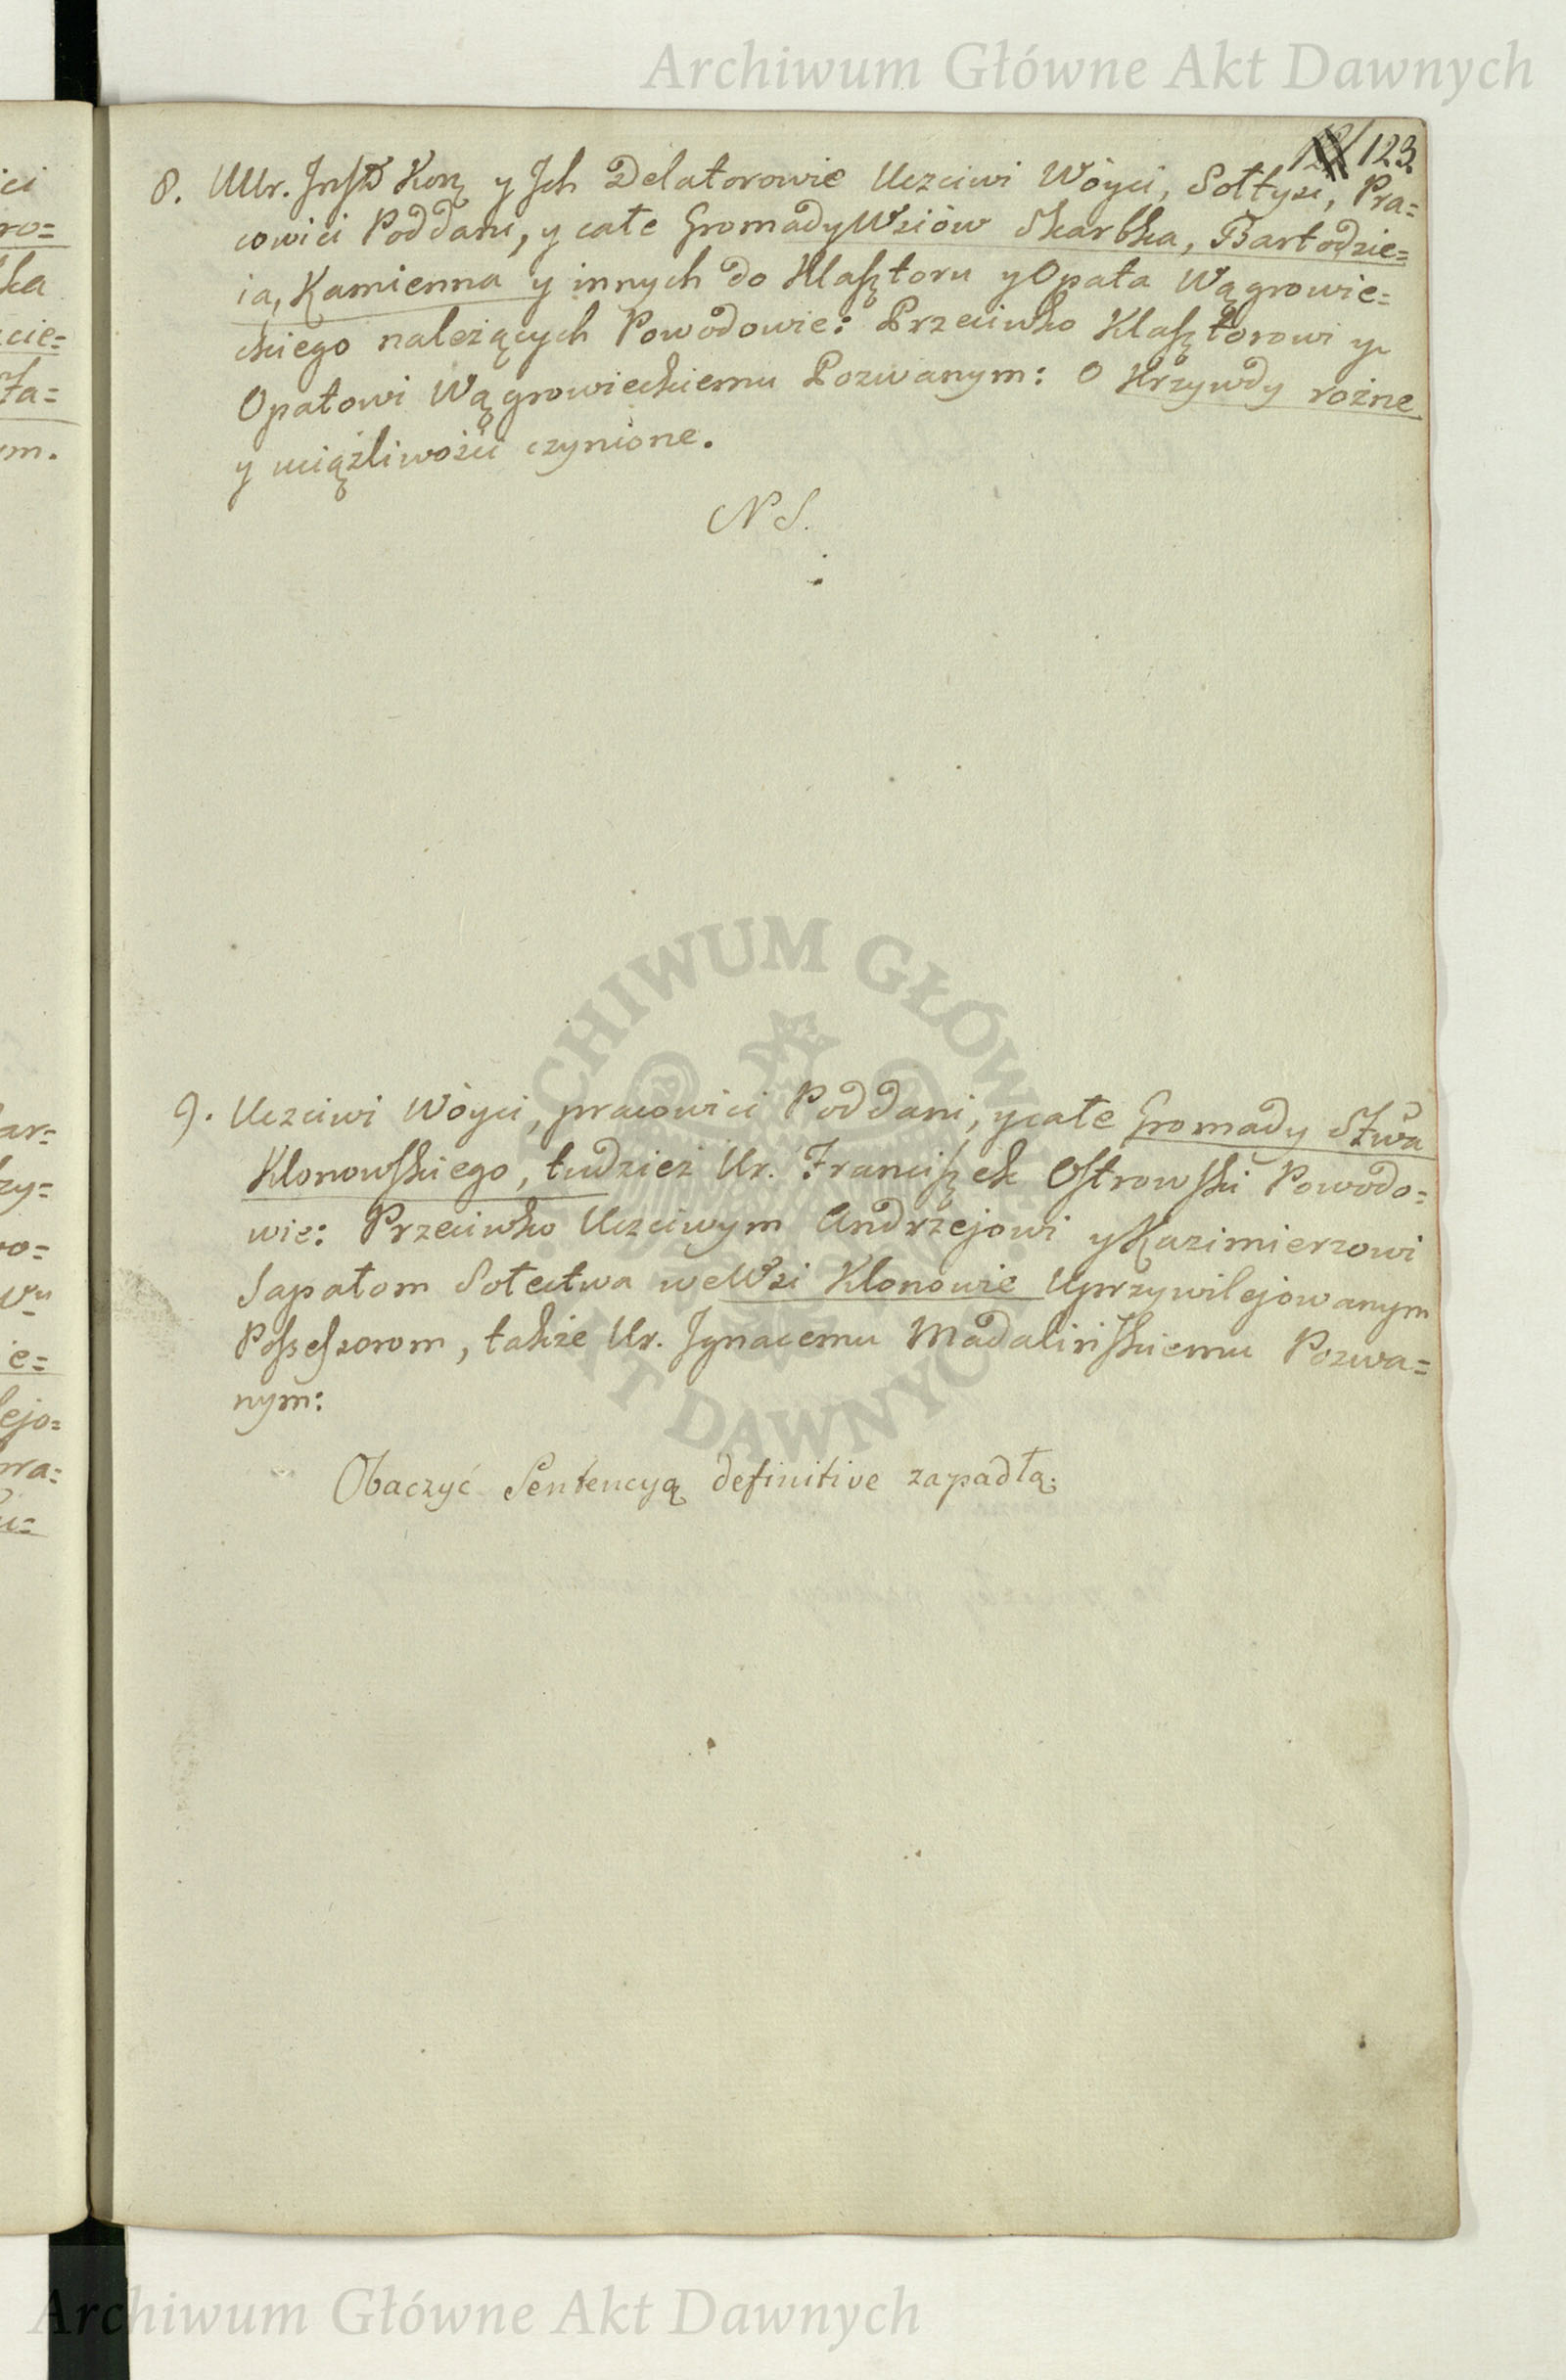 Archiwum Główne Akt Dawnych
123.
8. UUr. Inst. Kor. y Jch Delatorowie Uczciwi Wóyci, Sołtysi, Pra=
cowici Poddani, y całe Gromady Wsiów Skarbka, Bartodzie=
ia, Kamienna y innych do Klasztoru y Opata Wągrowie=
ckiego należących Powodowie: Przeciwko Klasztorowi y
Opatowi Wągrowieckiemu Pozwanym: O Krzywdy rożne
y uciążliwości czynione.
NS.
9. Uczciwi Wóyci, pracowici Poddani, y całe Gromady Stwa
Klonowskiego, tudzież Ur. Franciszek Ostrowski Powodo=
wie: Przeciwko Uczciwym Andrzejowi y Kazimierzowi
Sapałom Sołectwa we Wsi Klonowie Uprzywilejowanym
Possessorom, także Ur. Jgnacemu Madalińskiemu Pozwa=
nym:
Obaczyć Sentencyą definitive zapadłą.
ARCHIWUM GŁÓWNE AKT DAWNYCH
Archiwum Główne Akt Dawnych